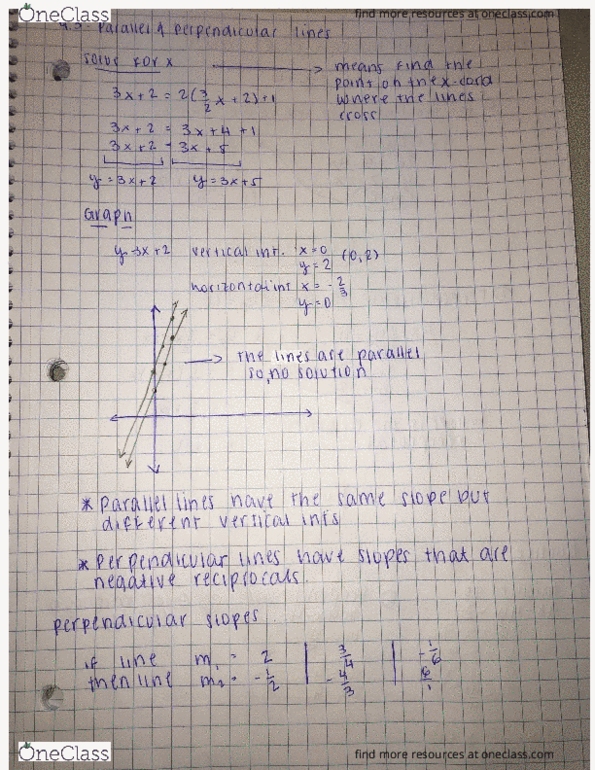 OneClass
find more resources at oneclass.com
4.3 - Parallel & perpendicular lines
solve for x → means find the
point on the x-cord
where the lines
cross
3x+2 = 2(3/2 x + 2)+1
3x+2 = 3x+4+1
3x+2 = 3x+5
y=3x+2 y=3x+5
Graph
y=3x+2 vertical int. x=0
y=2 (0,2)
horizontal int x = -2/3
y=0
→ the lines are parallel
so, no solution
* parallel lines have the same slope but
different vertical ints
* perpendicular lines have slopes that are
negative reciprocals.
perpendicular slopes
if line m₁ = 2 | 3/4 | -1/6
then line m₂ = -1/2 | -4/3 | 6/1
OneClass
find more resources at oneclass.com